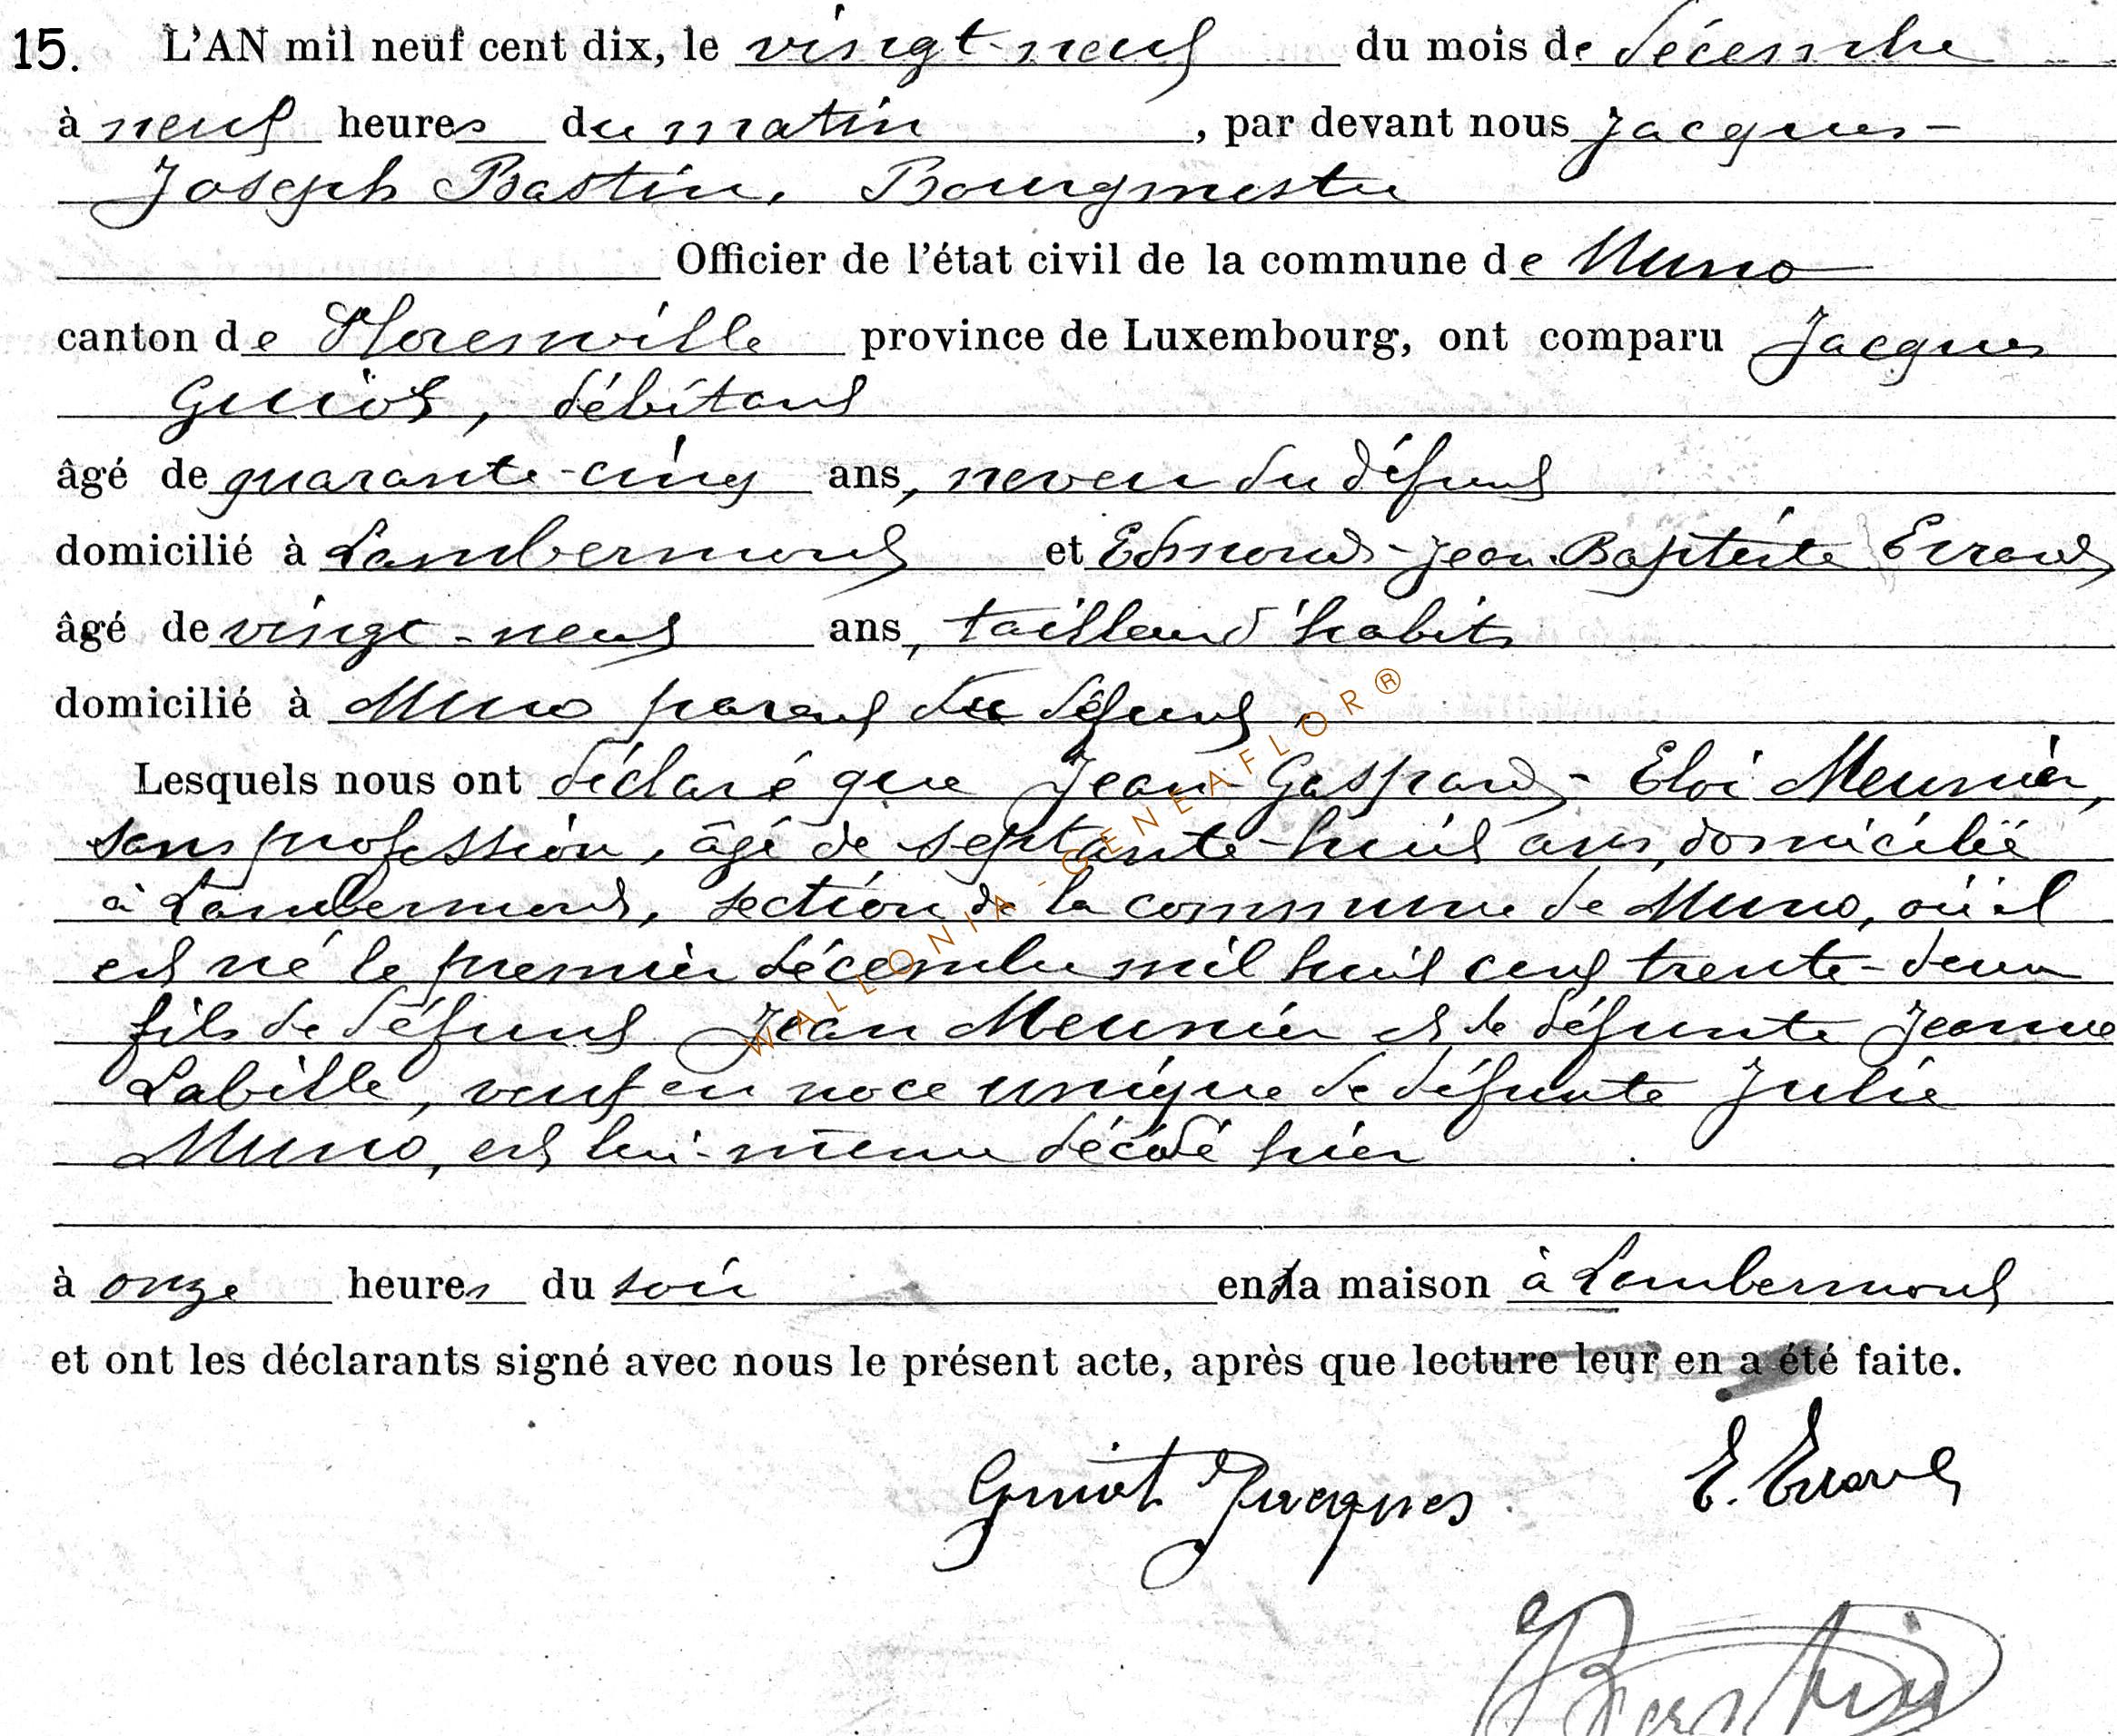 15. L'AN mil neuf cent dix, le vingt-neuf du mois de décembre
à neuf heures du matin, par devant nous Jacques-
Joseph Bastin, Bourgmestre
Officier de l'état civil de la commune de Muno
canton de Florenville province de Luxembourg, ont comparu Jacques
Guiot, débitant
âgé de quarante-cinq ans, neveu du défunt
domicilié à Lambermont et Edmond-Jean-Baptiste Errard
âgé de vingt-neuf ans, tailleur d'habits
domicilié à Muno parent du défunt,
Lesquels nous ont déclaré que Jean-Gaspard-Eloi Meunier,
sans profession, âgé de septante-huit ans, domicilié
à Lambermont, section de la commune de Muno, où il
est né le premier décembre mil huit cent trente-deux
fils de défunt Jean Meunier et de défunte Jeanne
Labille, veuf en noce unique de défunte Julie
Muno, est lui-même décédé hier
à onze heures du soir en sa maison à Lambermont
et ont les déclarants signé avec nous le présent acte, après que lecture leur en a été faite.
Guiot Jacques E. Errard
Bastin
WALLONIA-GENEAFLOR®